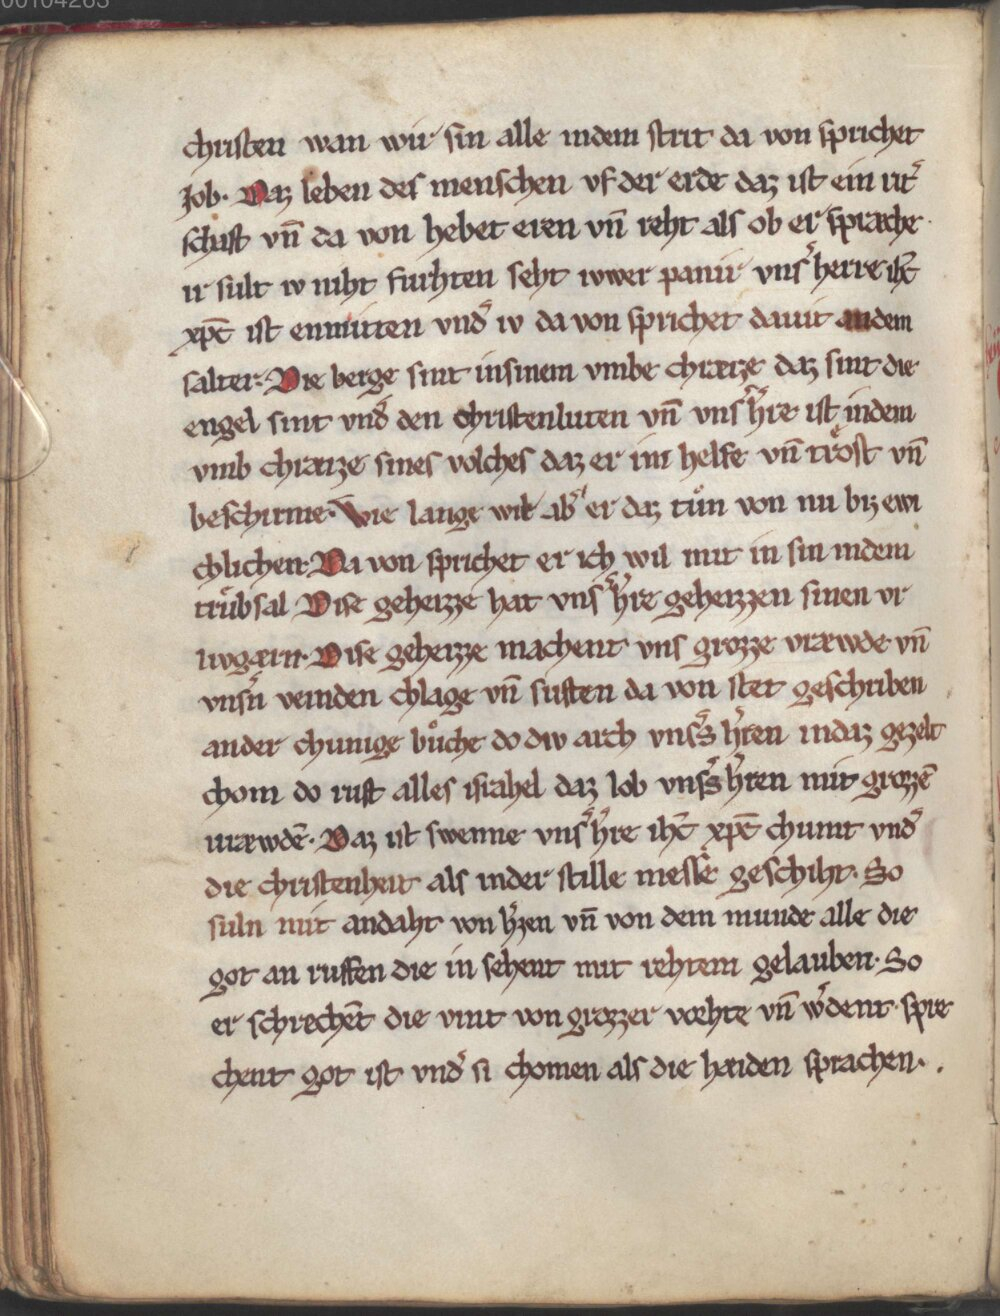 christen wan wir sin alle indem strit da von sprichet
Job. Daz leben des menschen vf der erde daz ist ein rit͛
schaft vn̄ da von hebet eren vn̄ reht als ob er sprache
ir sult iv niht furhten seht iwer panir vns͛ herre ih̄c
xp̄c ist enmitten vnd͛ iv da von sprichet dauit an dem
salter. Die berge sint in sinem vmbe chræize daz sint die
engel sint vnd͛ den christenluten vn̄ vns͛ h͛re ist indem
vmb chræize sines volches daz er im helfe vn̄ trŏst vn̄
beschirme. Wie lange wil ab͛ er daz tůn von nu biz ewi
chlichen. Da von sprichet er ich wil mit in sin indem
trůbsal Dise geheizze hat vns͛ h͛re geheizzen sinen vr
livgærn. Dise geheizze machent vns grozze vræwde vn̄
vnsn͛ veinden chlage vn̄ suften da von stet geschriben
ander chunige bůche do div arch vns͛s h͛ren indaz gezelt
chom do ruft alles israhel daz lob vns͛s h͛ren mit grozzē
vræwdē. Daz ist swenne vns͛ h͛re ih̄c xp̄c chumt vnd͛
die christenheit als inder stille messe geschiht. So
suln mit andaht von h͛zen vn̄ von dem munde alle die
got an ruffen die in sehent mit rehtem gelauben. So
er schrechēt die vint von grozzer vorhte vn̄ w͛dent spre
chent got ist vnd͛ si chomen als die hæiden sprachen.